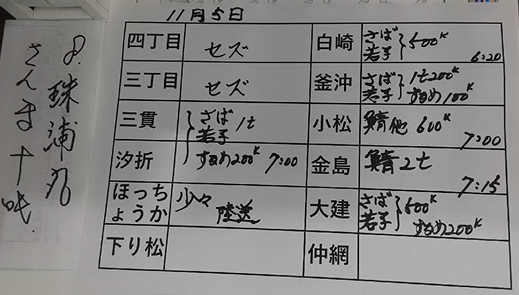 11月5日
8.珠浦丸
さんま十屯
四丁目 セズ
白崎 さば 若子 500K 6:20
三丁目 セズ
釜沖 さば 若子 1t200K するめ100K
三貫 さば 若子 1t
小松 鯖他 600K 7:00
汐折 するめ200K 7:00
金島 鯖2t 7:15
ほっちょうか 少々 陸送
大建 さば 若子 500K するめ200K
下り松
仲網